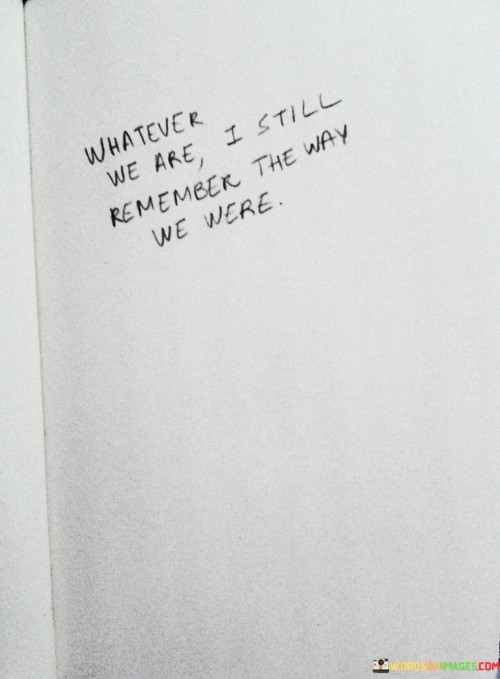 WHATEVER
WE ARE, I STILL
REMEMBER THE WAY
WE WERE.
WORDSONIMAGES.COM